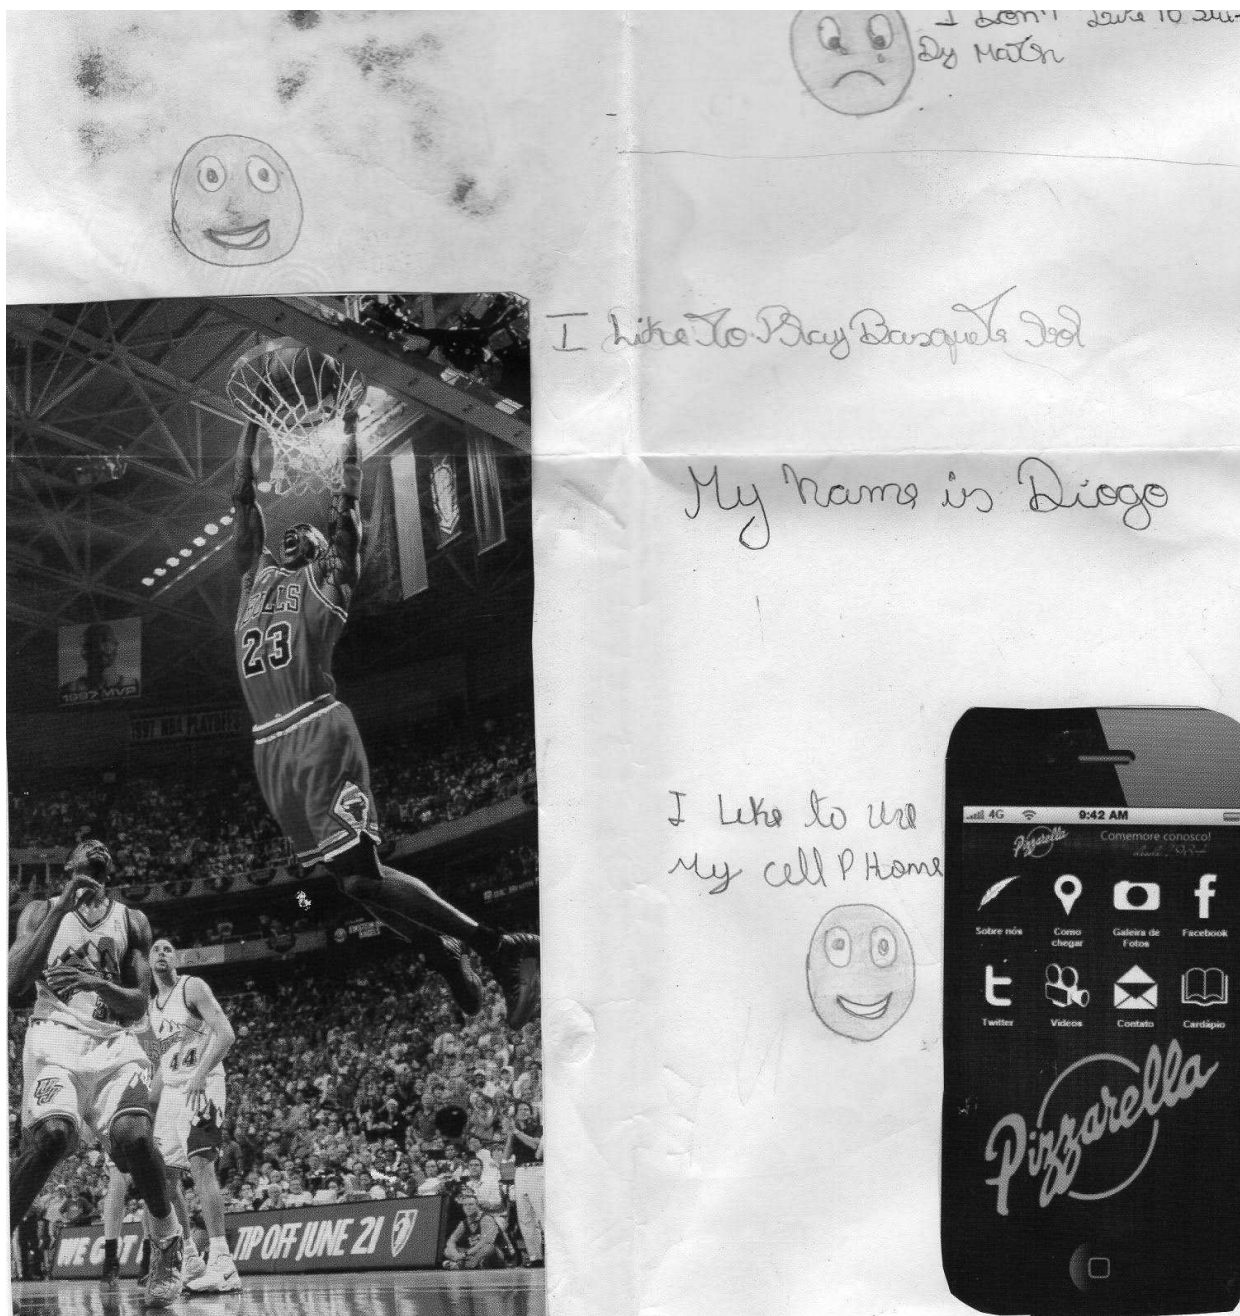 I Don't Like To Stu-
Dy Math
I Like To Play Basquete Bol
My name is Diogo
I Like to use
My cell PHome
BULLS
23
1997 MVP
1997 NBA PLAYOFFS
44
WE GOT
TIP OFF JUNE 21
4G
9:42 AM
Pizzarella
Comemore conosco!
Sobre nós
Como
chegar
Galeira de
Fotos
Facebook
Twitter
Vídeos
Contato
Cardápio
Pizzarella